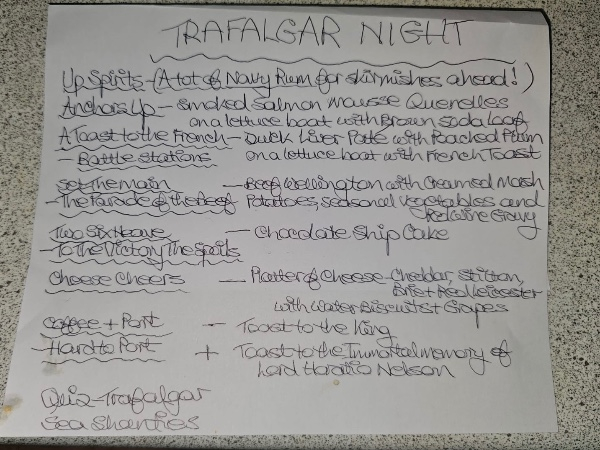 TRAFALGAR NIGHT
Up Spirits - (A tot of Navy Rum for skirmishes ahead!)
Anchors Up - Smoked Salmon Mousse Querelles
on a lettuce boat with Brown soda loaf
A Toast to the French - Duck Liver Pate with Poached Plum
- Battle stations on a lettuce boat with French Toast
Set The main - Beef Wellington with Creamed Mash
- The Parade of the Beef Potatoes, seasonal vegetables and
Red Wine Gravy
Two Six Heave - Chocolate Ship Cake
- To The Victory The Spoils
Cheese Cheers - Platter of Cheese - Cheddar, Stilton,
Brie + Red Leicester
with Water Biscuits + Grapes
Coffee + Port - Toast to the King
- Hard to Port + Toast to the Immortal memory of
Lord Horatio Nelson
Quiz - Trafalgar
Sea Shanties